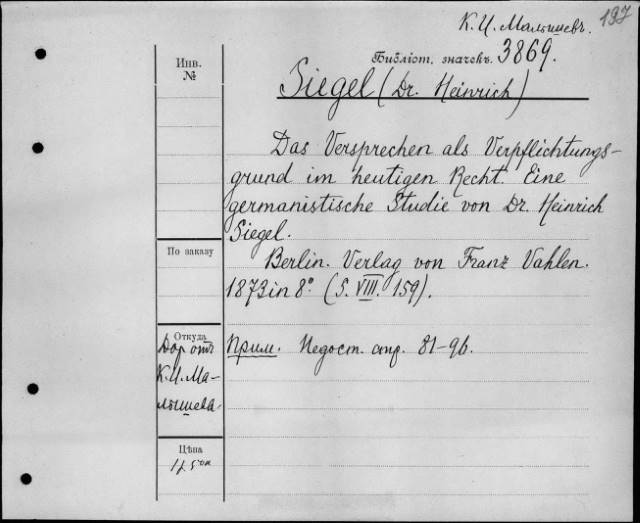 К. И. Малышевъ. 197
Инв.
№
Библіот. значекъ. 3869.
Siegel (Dr. Heinrich)
Das Versprechen als Verpflichtungs-
grund im heutigen Recht. Eine
germanistische Studie von Dr. Heinrich
Siegel.
По заказу
Berlin. Verlag von Franz Vahlen.
1873 in 8° (S. VIII. 159).
Откуда
Даръ отъ
К. И. Ма-
лышева.
Прим. Недост. стр. 81-96.
Цѣна